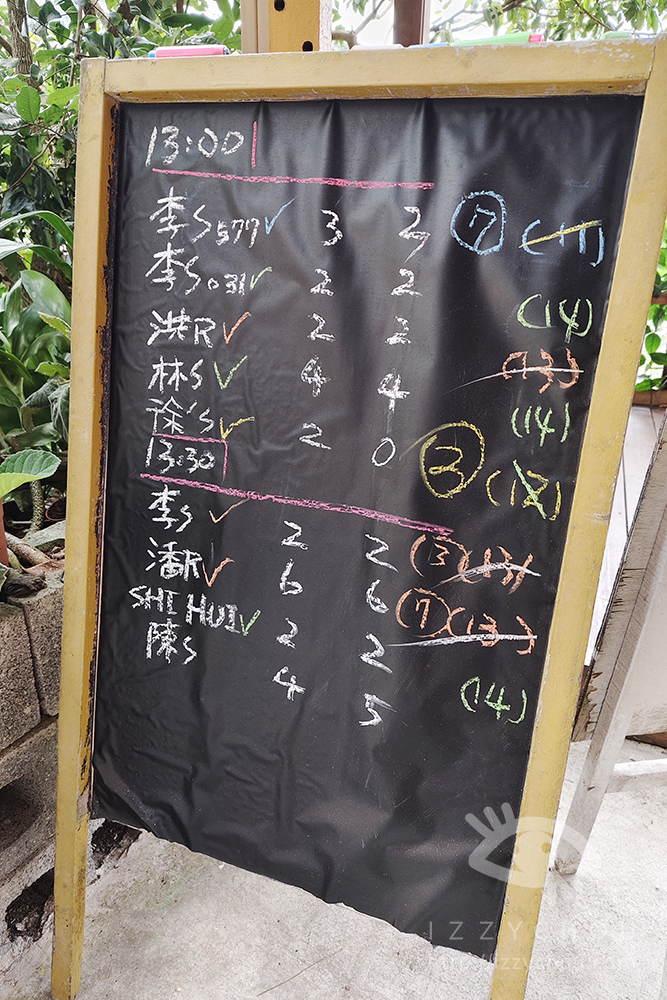 13:00
李S 577 ✓ 3 2 ⑦ (11)
李S 031 ✓ 2 2 (14)
洪R ✓ 2 2 (13)
林S ✓ 4 4 (14)
徐'S ✓ 2 0 ② (12)
13:30
李S ✓ 2 2 (3) (13)
潘R ✓ 6 6 (7) (13)
SHI HUI ✓ 2 2 (14)
陳S 4 5
IZZY